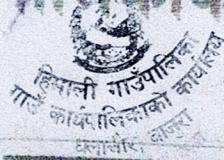 हिमाली गाउँपालिका
गाउँ कार्यपालिकाको कार्यालय
बाजुरा